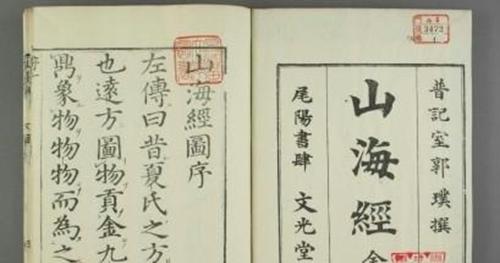 晋記室郭璞撰
山海經全
尾陽書肆 文光堂
山海經圖序
左傳曰昔夏氏之方
也遠方圖物貢金九
鼎象物物物而為之